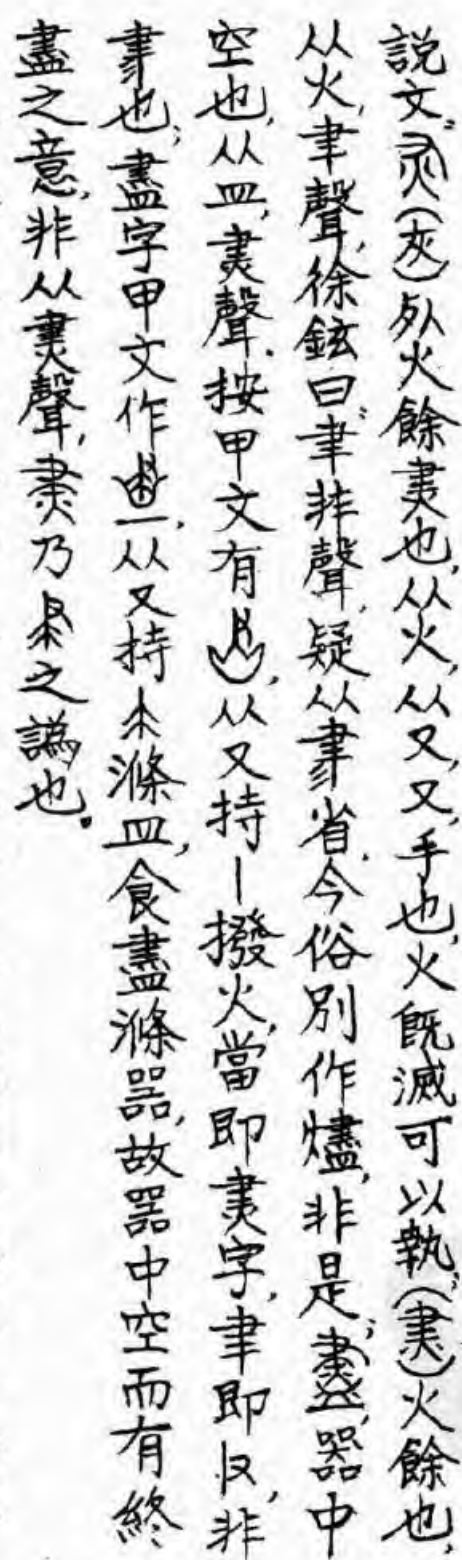 説文：（灰）死火餘㶳也，从火，从又又，手也，火既滅可以執；（㶳）火餘也，
从火，聿聲，徐鉉曰：聿非聲，疑从𦘔省，今俗別作燼，非是；盡，器中
空也，从皿，㶳聲．按甲文有，从又持丨撥火，當即㶳字，聿即，非
𦘔也；盡字甲文作，从又持滌皿，食盡滌器，故器中空而有終
盡之意，非从㶳聲，㶳乃之譌也．